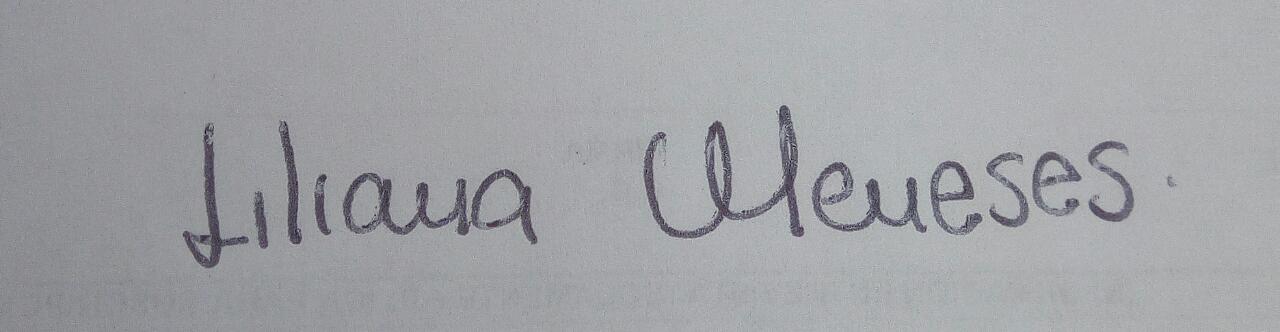 Liliana Meneses.